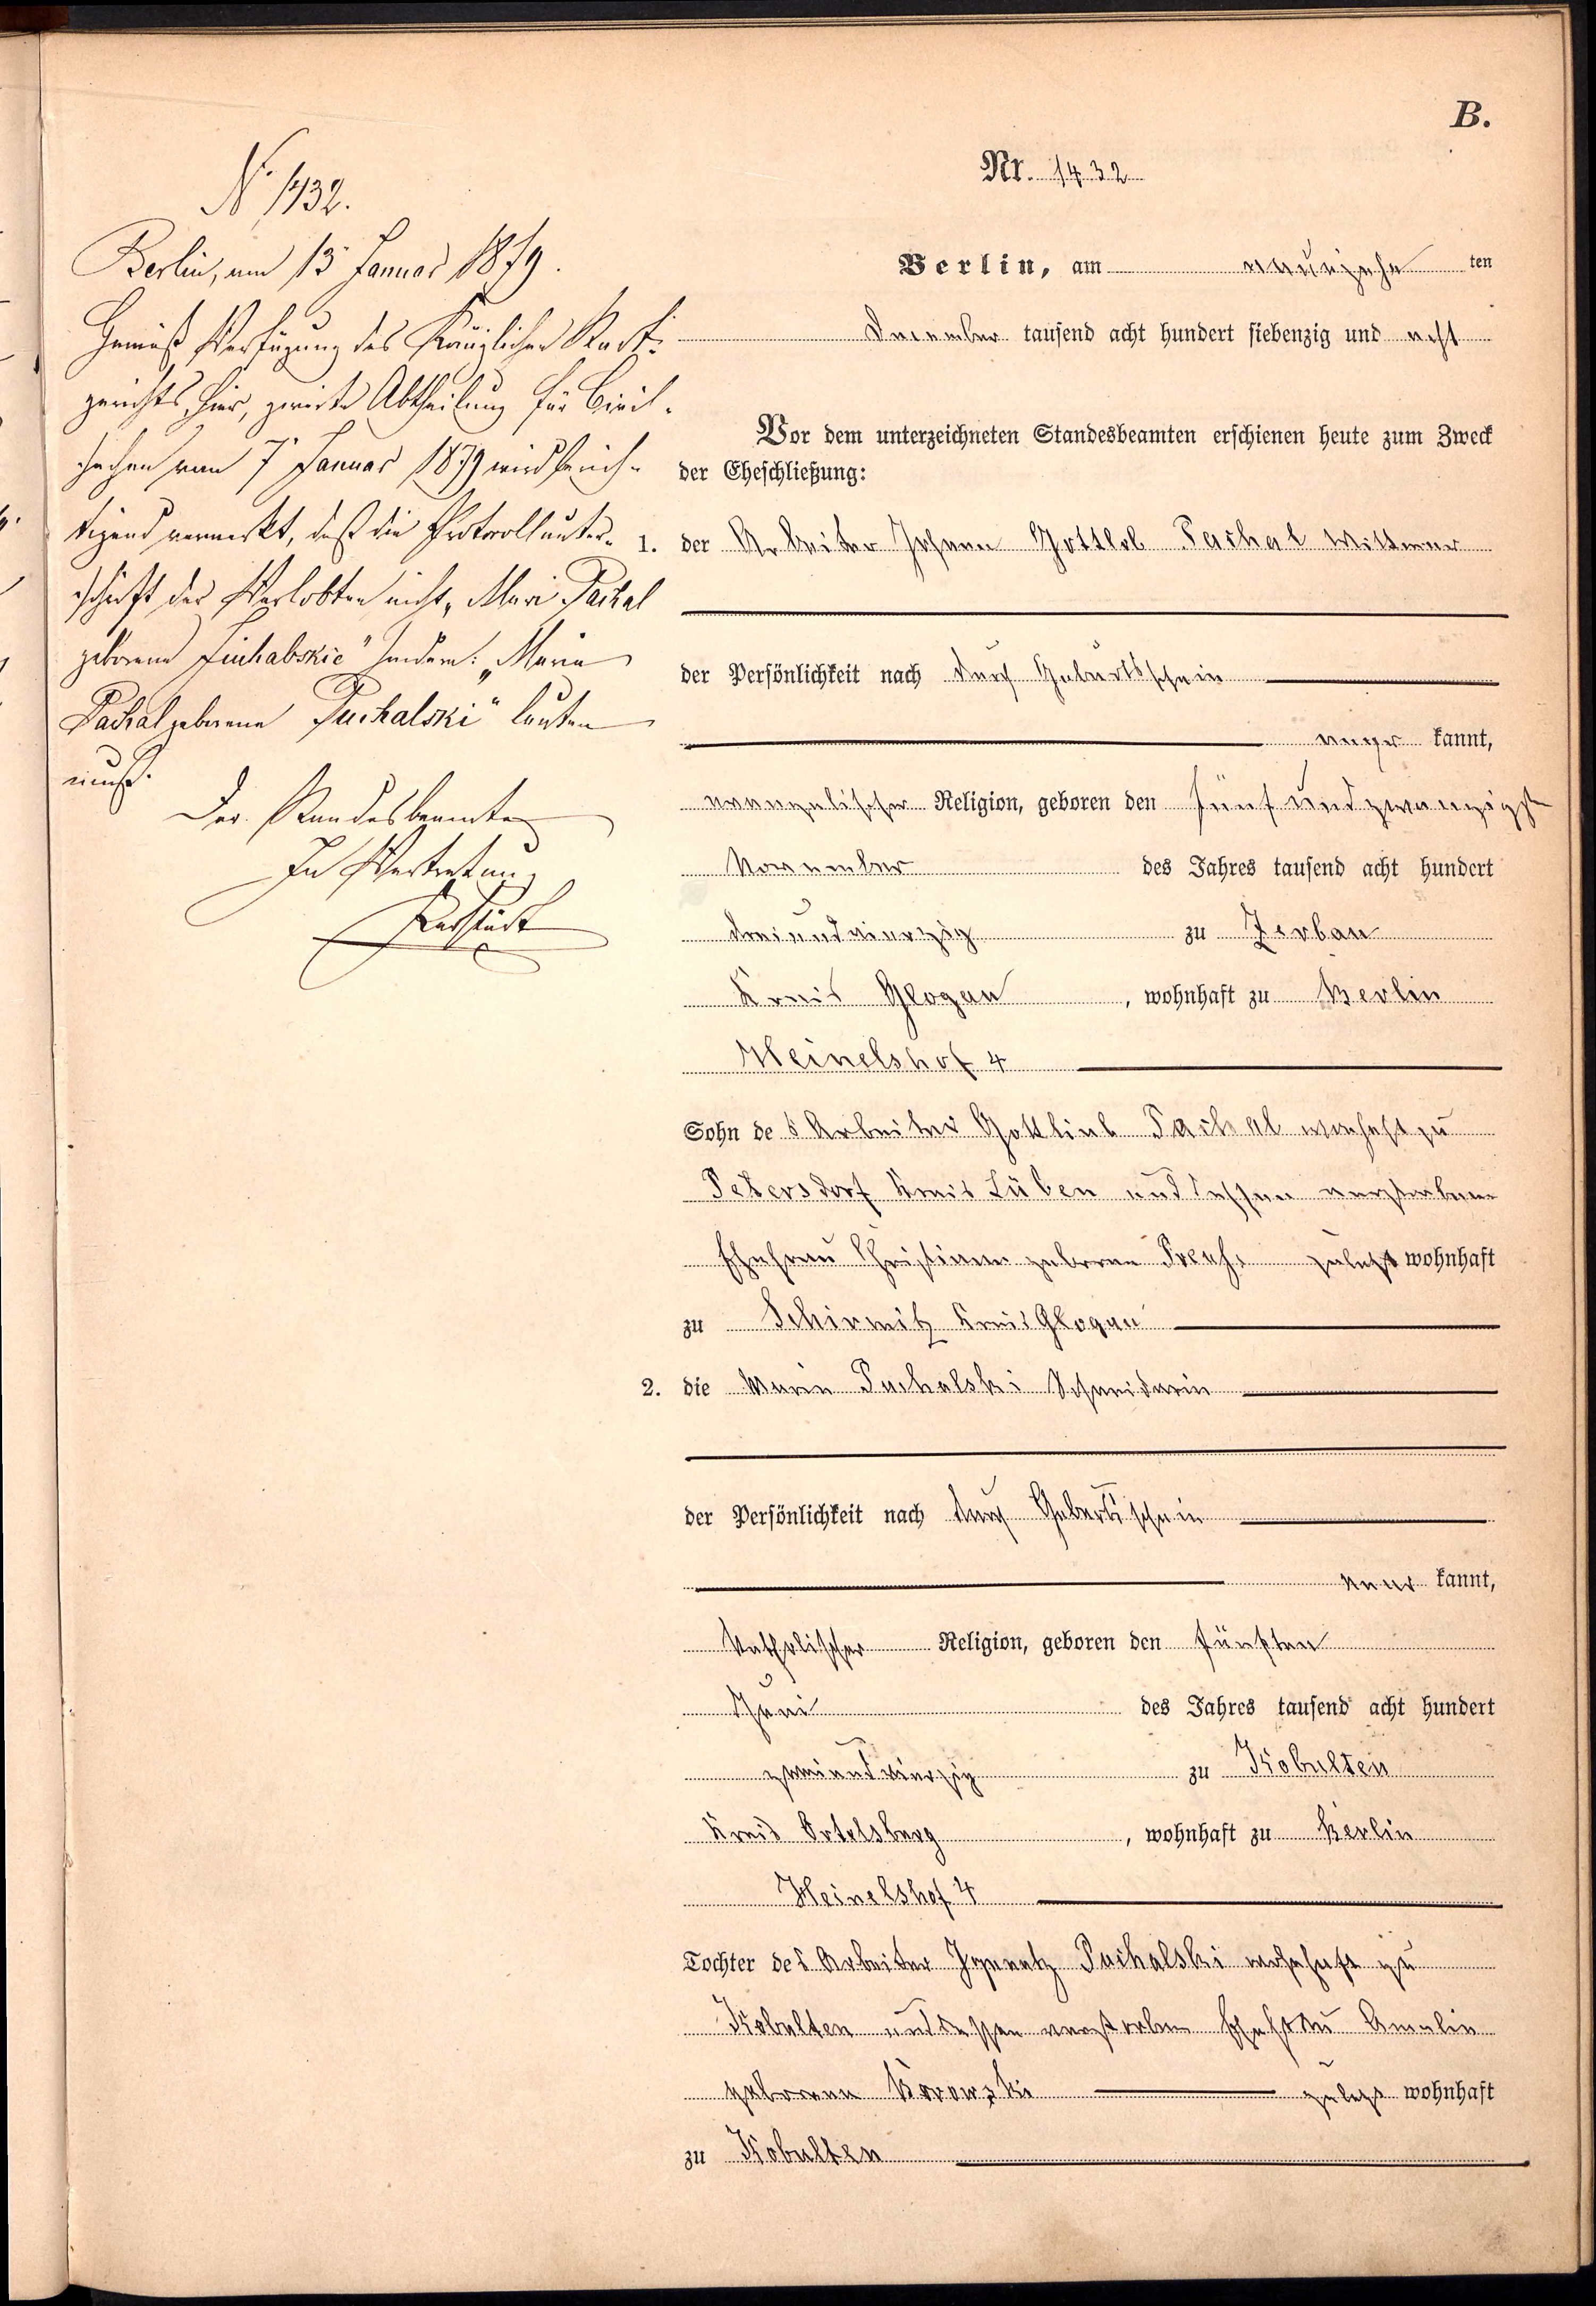 B.
N. 1432.
Berlin, am 13 Januar 1879.
Gemäß Verfügung des Königlichen Stadt-
gerichts, hier, zweite Abtheilung für Civil-
sachen vom 7 Januar 1879 wird berich-
tigend vermerkt, daß die Protocollunter-
schrift der Verlobten nicht „Mari Pachal
geborene Juchabskie" sondern: „Marie
Pachal geborene Puchalski" lauten
muß.
Der Standesbeamte
In Vertretung
Nr. 1432
Berlin, am neunzehn ten
December tausend acht hundert siebenzig und acht
Vor dem unterzeichneten Standesbeamten erschienen heute zum Zweck
der Eheschließung:
1. der Arbeiter Johann Gottlob Pachal Wittwer
der Persönlichkeit nach durch Geburtsschein
kannt,
evangelischer Religion, geboren den fünf und zwanzigsten
November des Jahres tausend acht hundert
dreiundvierzig zu Zerbau
Kreis Glogau, wohnhaft zu Berlin
Heinelshof 4
Sohn des Arbeiter Gottlieb Pachal wohnhaft zu
Petersdorf Kreis Lüben und dessen verstorbene
Ehefrau Christiane geborene zuletzt wohnhaft
zu Schirmitz Kreis Glogau
2. die Marie Puchalski Schneiderin
der Persönlichkeit nach durch Geburtsschein
aner kannt,
katholischer Religion, geboren den fünften
Juni des Jahres tausend acht hundert
zweiundvierzig zu Kobulten
Kreis Ortelsburg, wohnhaft zu Berlin
Heinelshof 4
Tochter des Arbeiter Ignatz Puchalski wohnhaft zu
Kobulten und dessen verstorbene Ehefrau Amalie
geborene Borowzki zuletzt wohnhaft
zu Kobulten